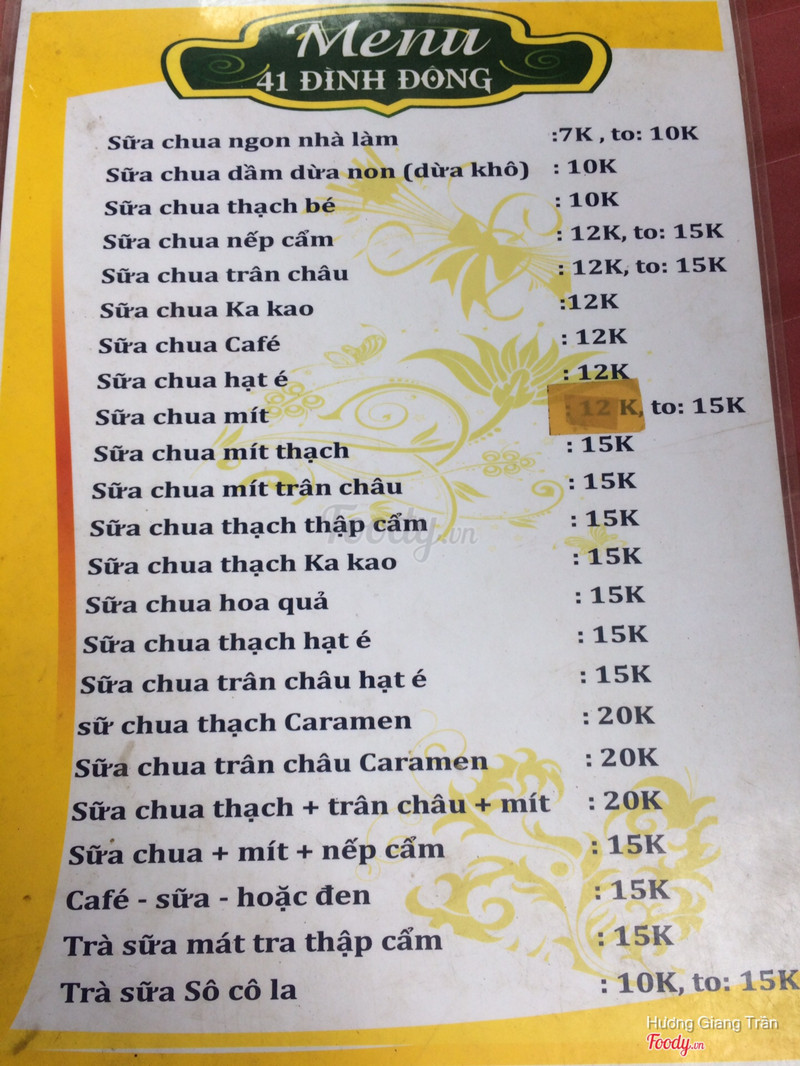 Menu
41 ĐÌNH ĐÔNG
Sữa chua ngon nhà làm :7K , to: 10K
Sữa chua dầm dừa non (dừa khô) : 10K
Sữa chua thạch bé : 10K
Sữa chua nếp cẩm : 12K, to: 15K
Sữa chua trân châu : 12K, to: 15K
Sữa chua Ka kao :12K
Sữa chua Café : 12K
Sữa chua hạt é : 12K
Sữa chua mít : 12 K, to: 15K
Sữa chua mít thạch : 15K
Sữa chua mít trân châu : 15K
Sữa chua thạch thập cẩm : 15K
Foody.vn
Sữa chua thạch Ka kao : 15K
Sữa chua hoa quả : 15K
Sữa chua thạch hạt é : 15K
Sữa chua trân châu hạt é : 15K
sữ chua thạch Caramen : 20K
Sữa chua trân châu Caramen : 20K
Sữa chua thạch + trân châu + mít : 20K
Sữa chua + mít + nếp cẩm : 15K
Café - sữa - hoặc đen : 15K
Trà sữa mát tra thập cẩm : 15K
Trà sữa Sô cô la : 10K, to: 15K
Hương Giang Trần
Foody.vn